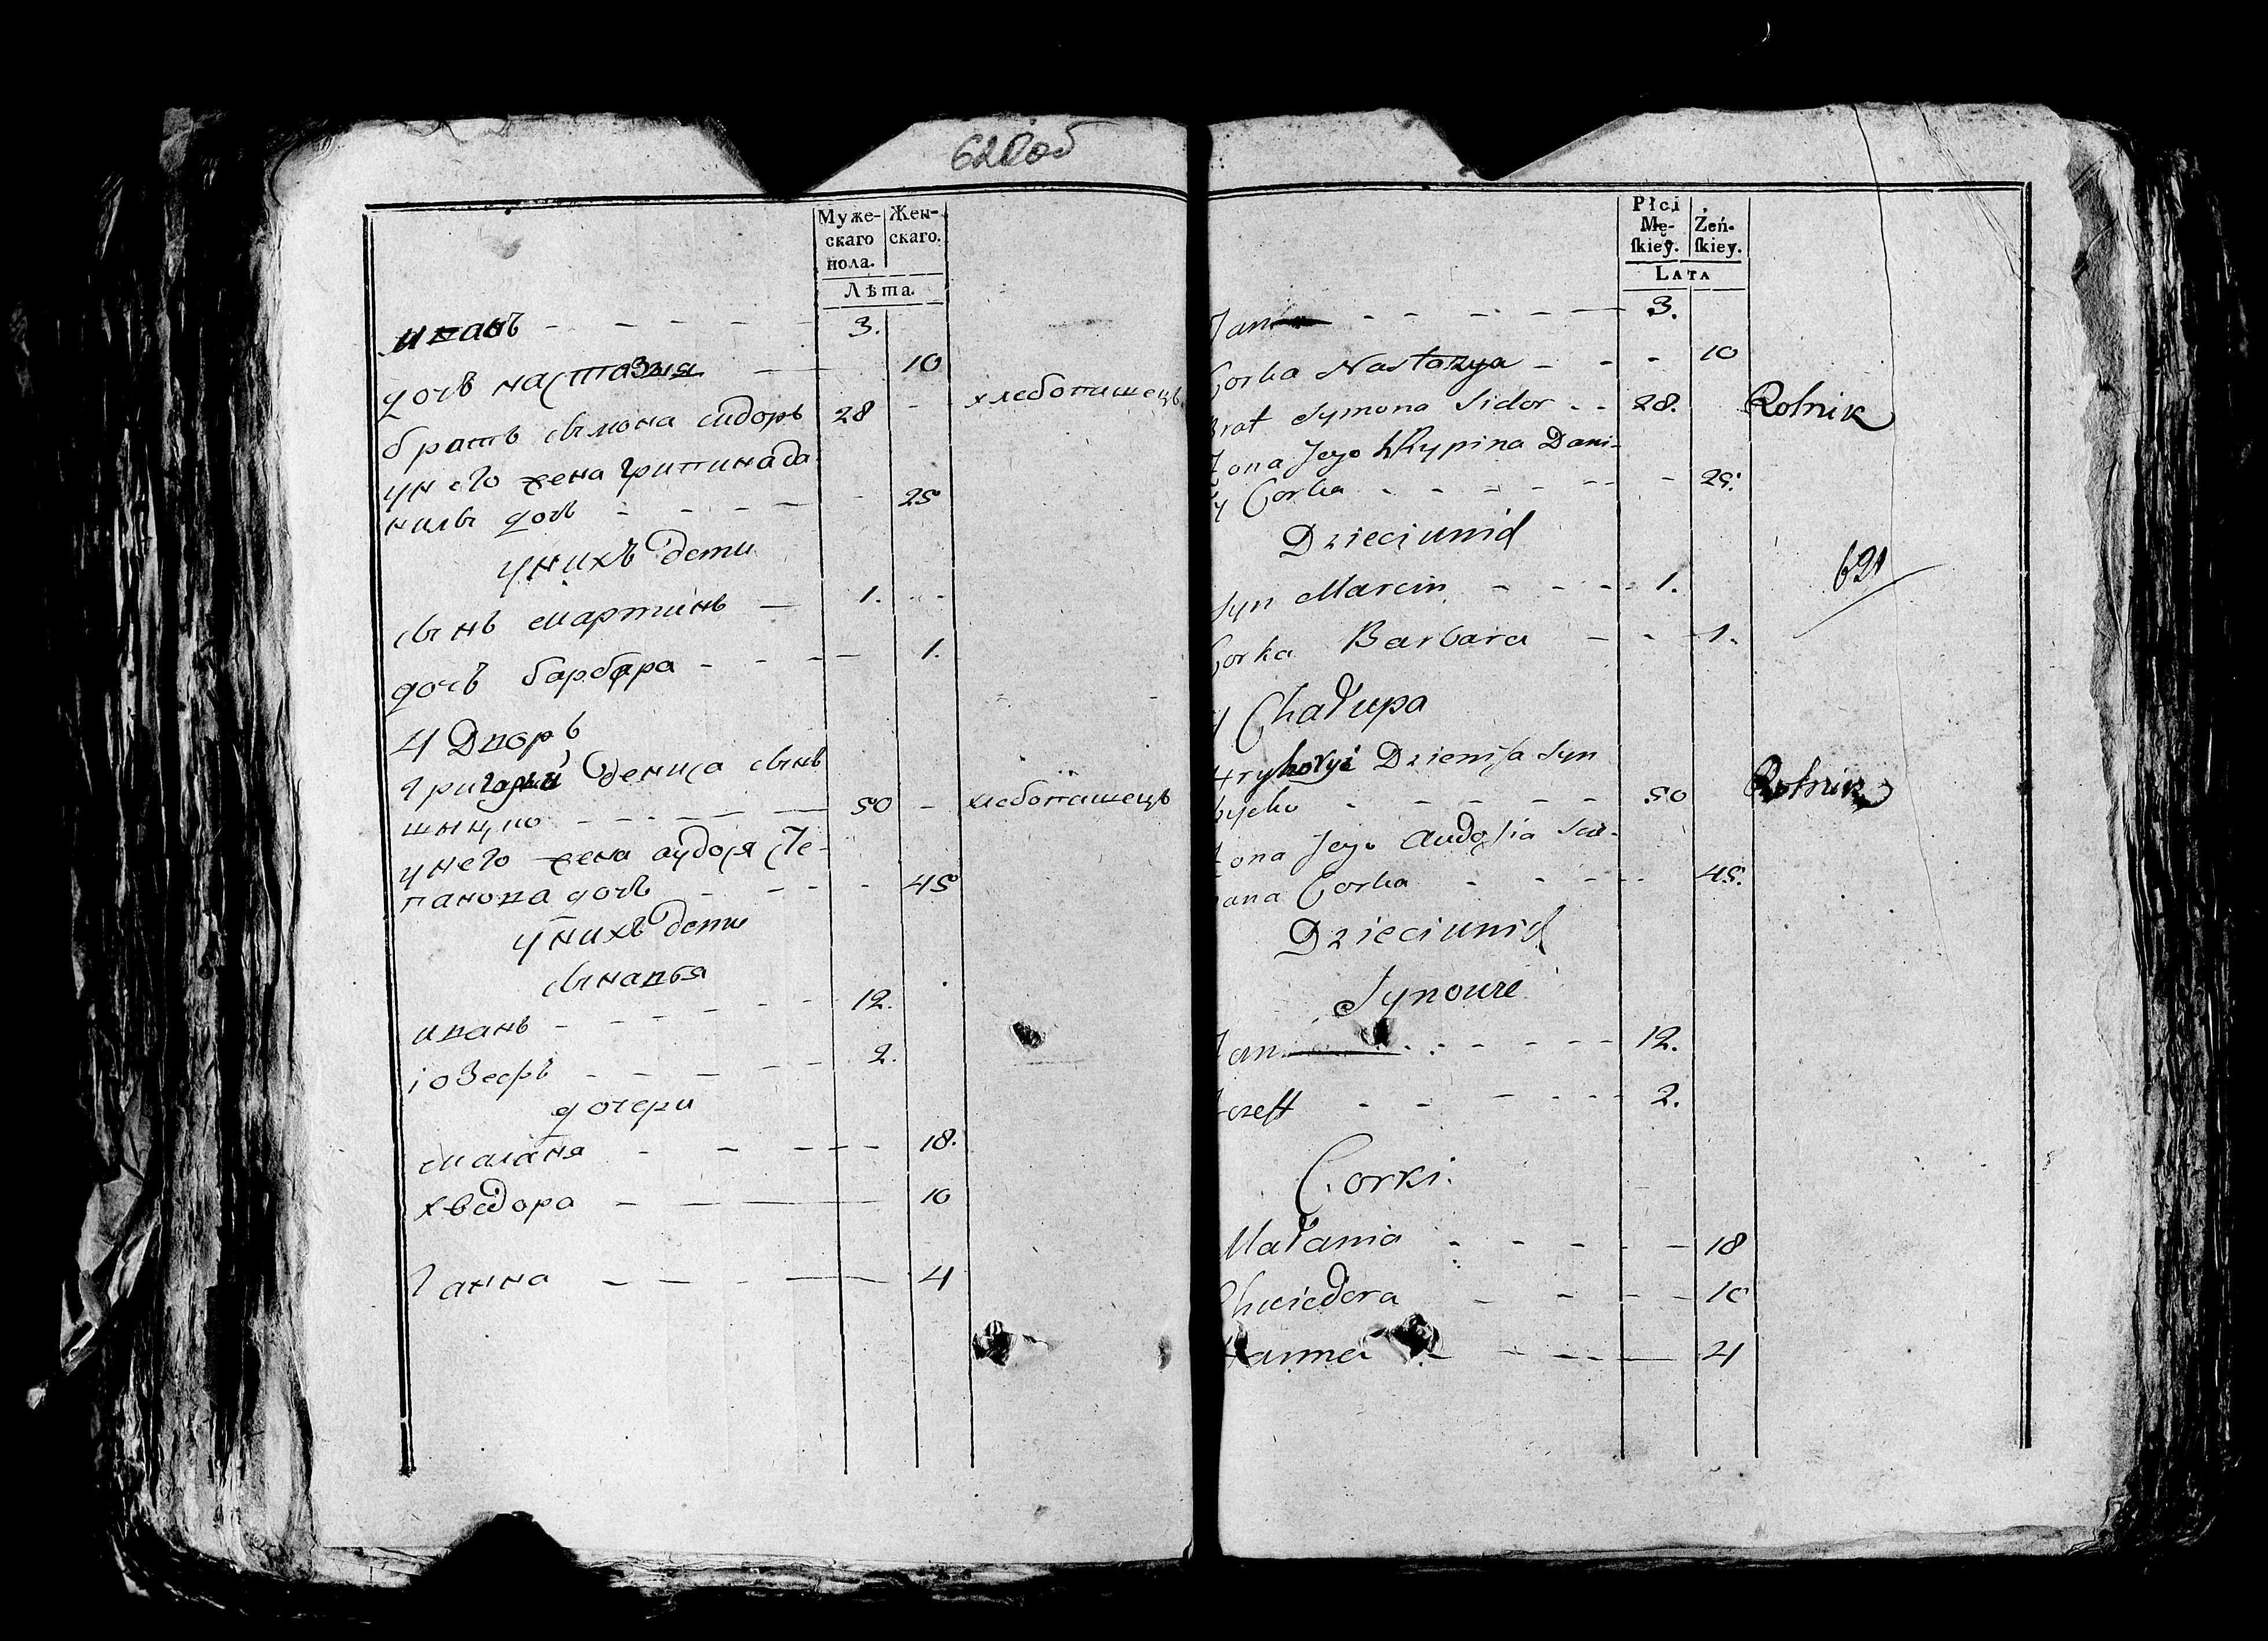 620об
Муже-
скаго
пола.
Жен-
скаго.
Лѣта.
иванъ - - - - - 3.
дочъ настазия — 10
братъ сымона сидоръ 28 - хлебопашецъ
у него жена грипина да-
нилы дочъ - - - - - 25
у нихъ дети
сынъ мартинъ — 1.
дочъ барбара - - - — 1.
4 Дворъ
григорий дениса сынъ
50 - хлебопашецъ
у него жена аудося сте-
панова дочъ - - - - 45
у нихъ дети
сынавья
иванъ - - - - - - 12.
іозефъ - - - - - - 2.
дочери
маланя - - - - - 18.
хведора - - — 10
ганна - - - — 4
Płci
Mę-
skiey.
Żeń-
skiey.
LATA
Jan - - - - - 3.
Corka Nastazya - - - 10
Brat Symona Sidor - - 28. Rolnik
Zona Jego Hrypina Dani-
y Corka - - - - - - 25.
Dzieci unid
621
Syn Marcin - - - - 1.
Corka Barbara - - - 1.
4 Chałupa
Hryhoryi Dzienisa Syn
- - - - - 50 Rolnik
Zona Jego Audosia Scie-
pana Corka - - - - 45.
Dzieci unid
Synowie
Jan - - - - - 12.
Jozeff - - - - - - 2.
Corki.
Małania - - - - - 18
Chwiedora - - - - 10
Hanna - - - - — 4